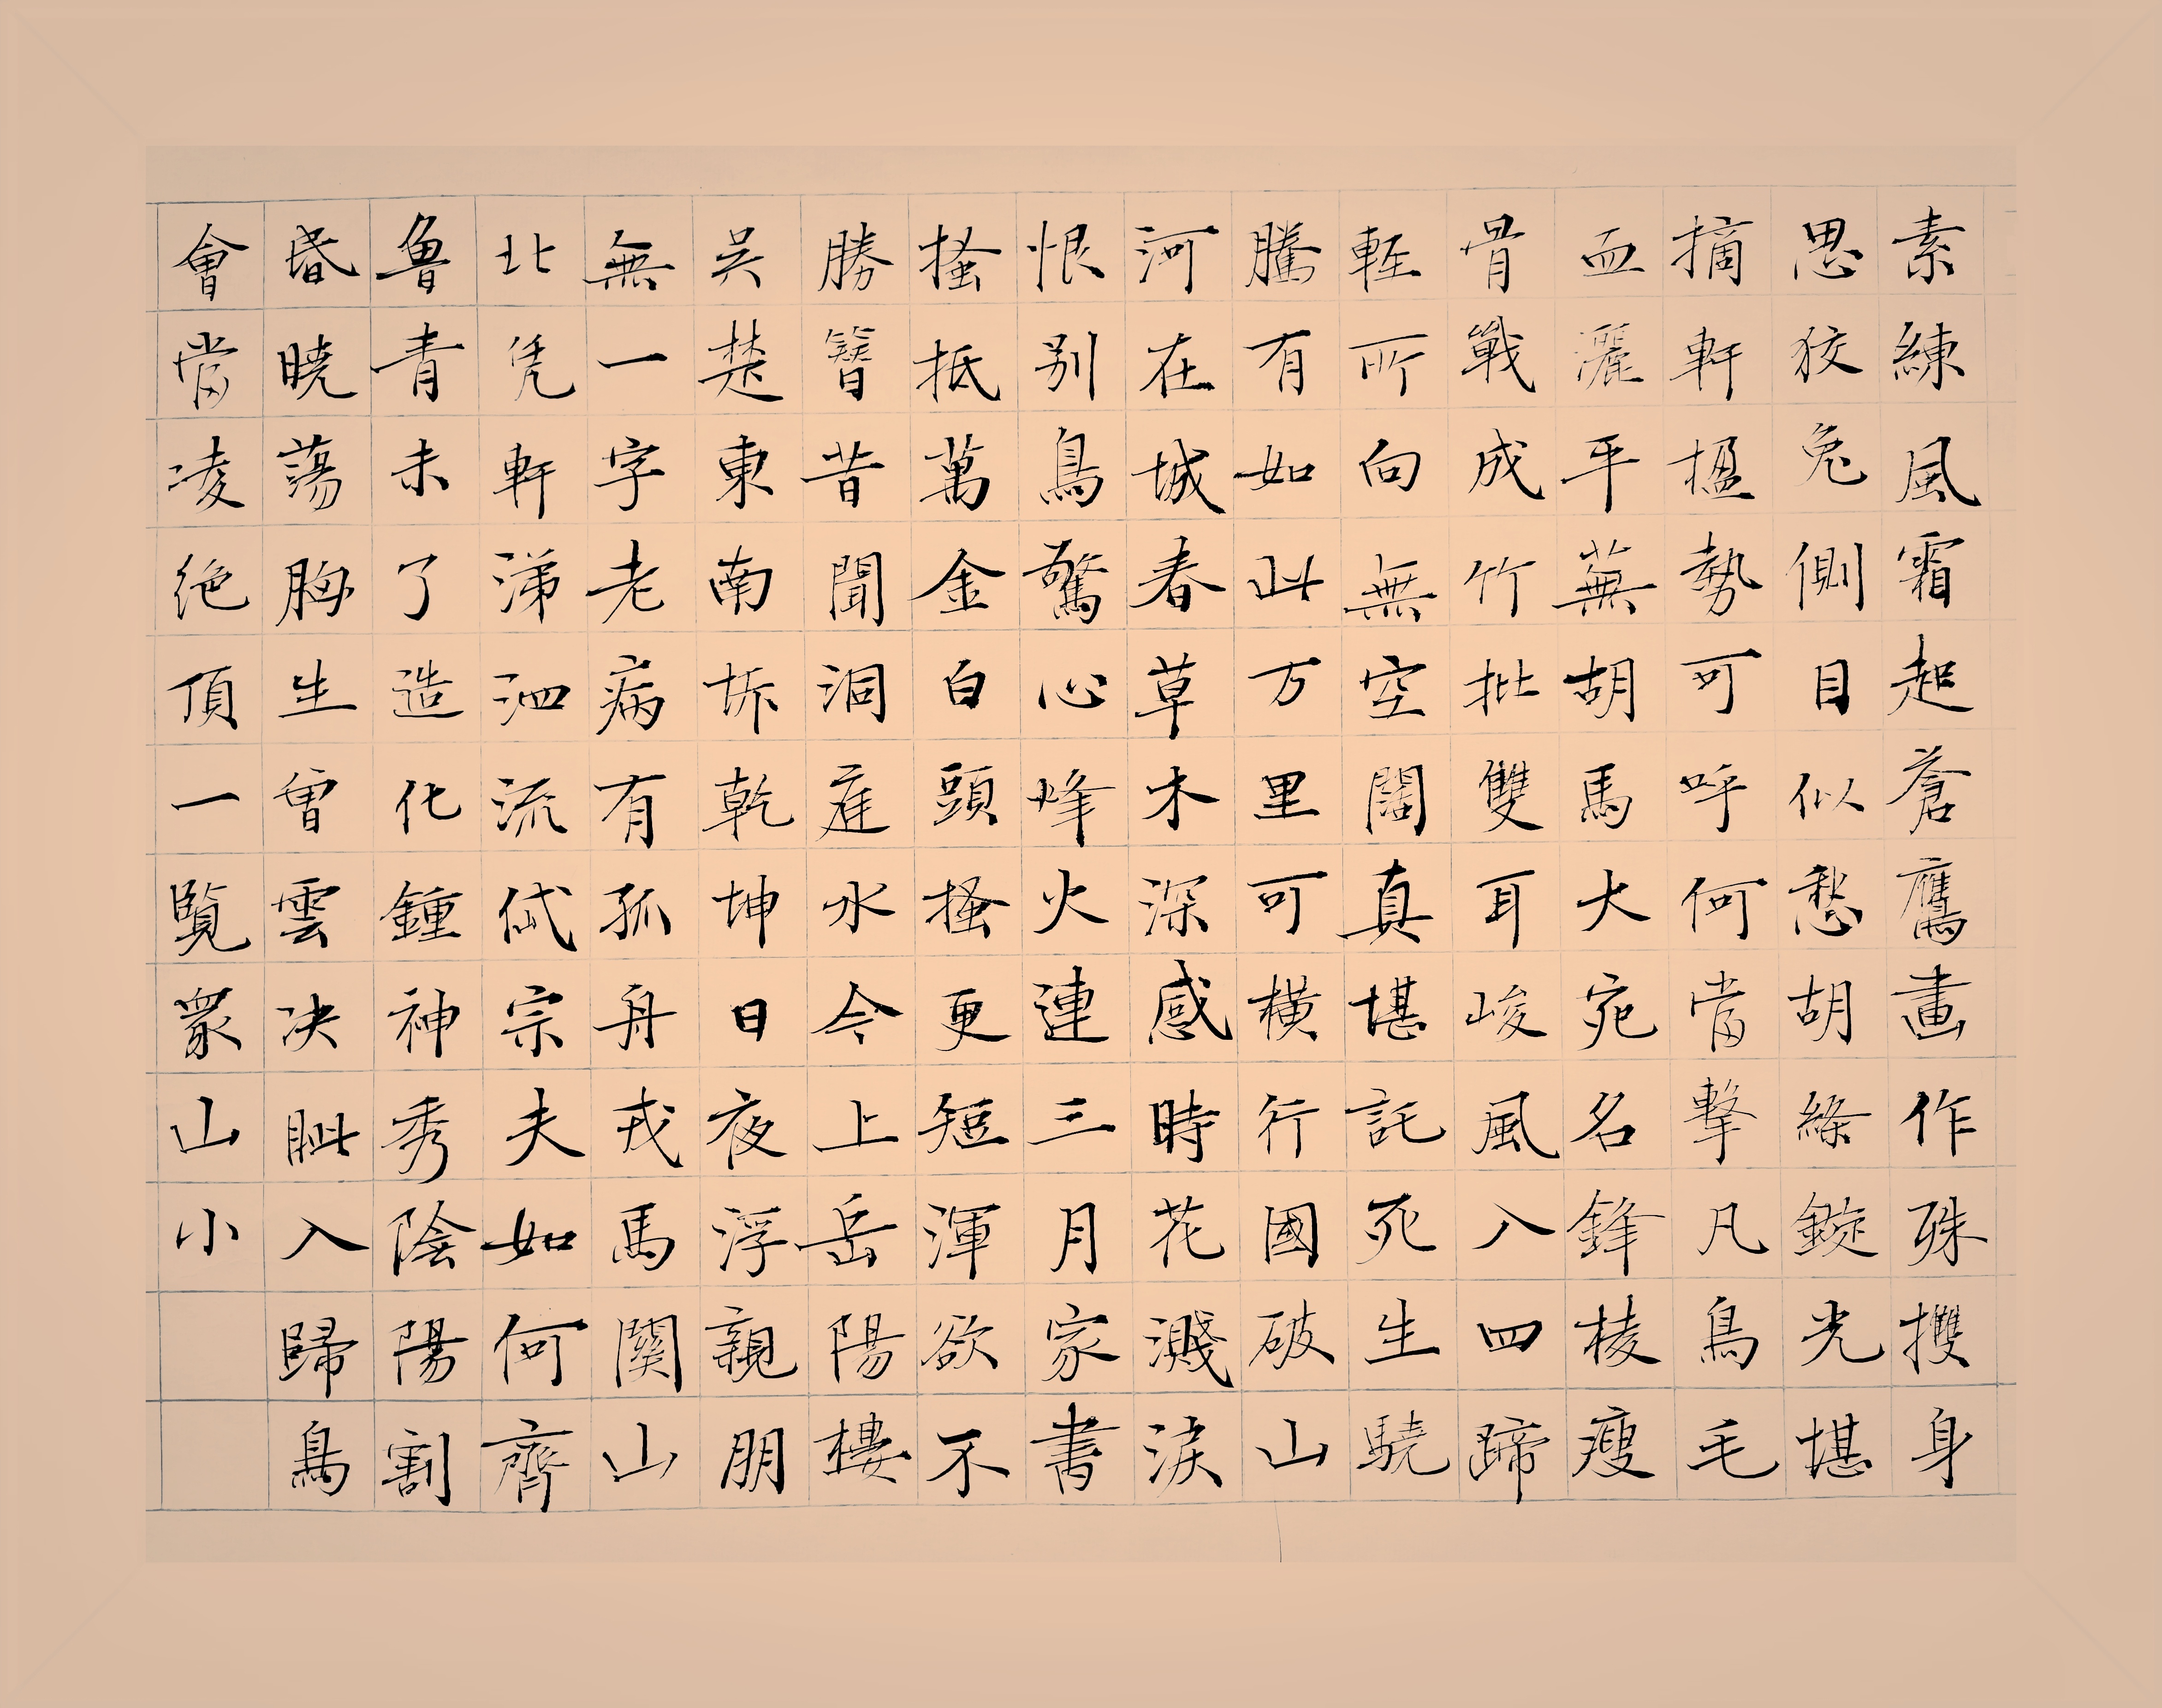 素練風霜起蒼鷹畫作殊㩳身
思狡兔側目似愁胡絛鏇光堪
摘軒楹勢可呼何當擊凡鳥毛
血灑平蕪胡馬大宛名鋒棱瘦
骨戰成竹批雙耳峻風入四蹄
輊所向無空闊真堪託死生驍
騰有如此万里可橫行國破山
河在城春草木深感時花濺淚
恨别鳥驚心烽火連三月家書
搔抵萬金白頭搔更短渾欲不
勝簪昔聞洞庭水今上岳陽樓
吴楚東南坼乾坤日夜浮親朋
無一字老病有孤舟戎馬關山
北凭軒涕泗流岱宗夫如何齊
魯青未了造化鍾神秀陰陽割
昏曉蕩胸生曾雲决眦入歸鳥
會當凌絶頂一覽衆山小